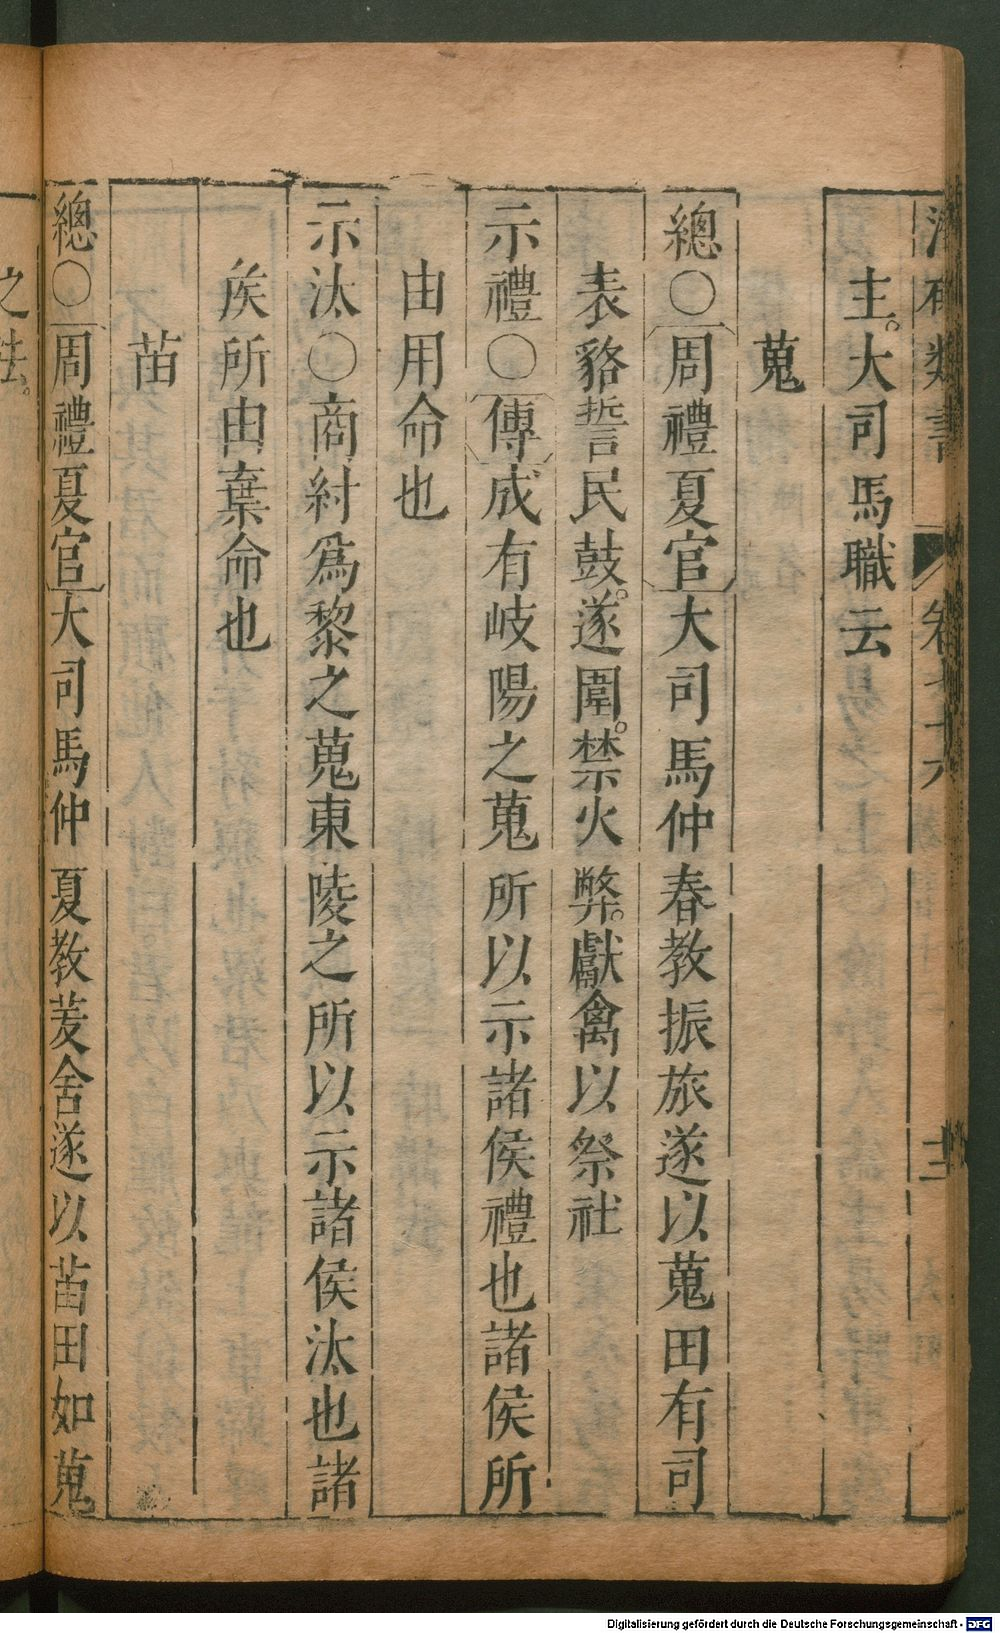 類書 卷七十六 十二
主。大司馬職云
蒐
總〇周禮夏官大司馬仲春教振旅遂以蒐田有司
表貉誓民鼓。遂圍。禁火弊。獻禽以祭社
示禮〇傳成有岐陽之蒐所以示諸侯禮也諸侯所
由用命也
示汰〇商紂爲黎之蒐東陵之所以示諸侯汰也諸
矦所由棄命也
苗
總〇周禮夏官大司馬仲夏教茇舍遂以苗田如蒐
之法。
Digitalisierung gefördert durch die Deutsche Forschungsgemeinschaft - DFG